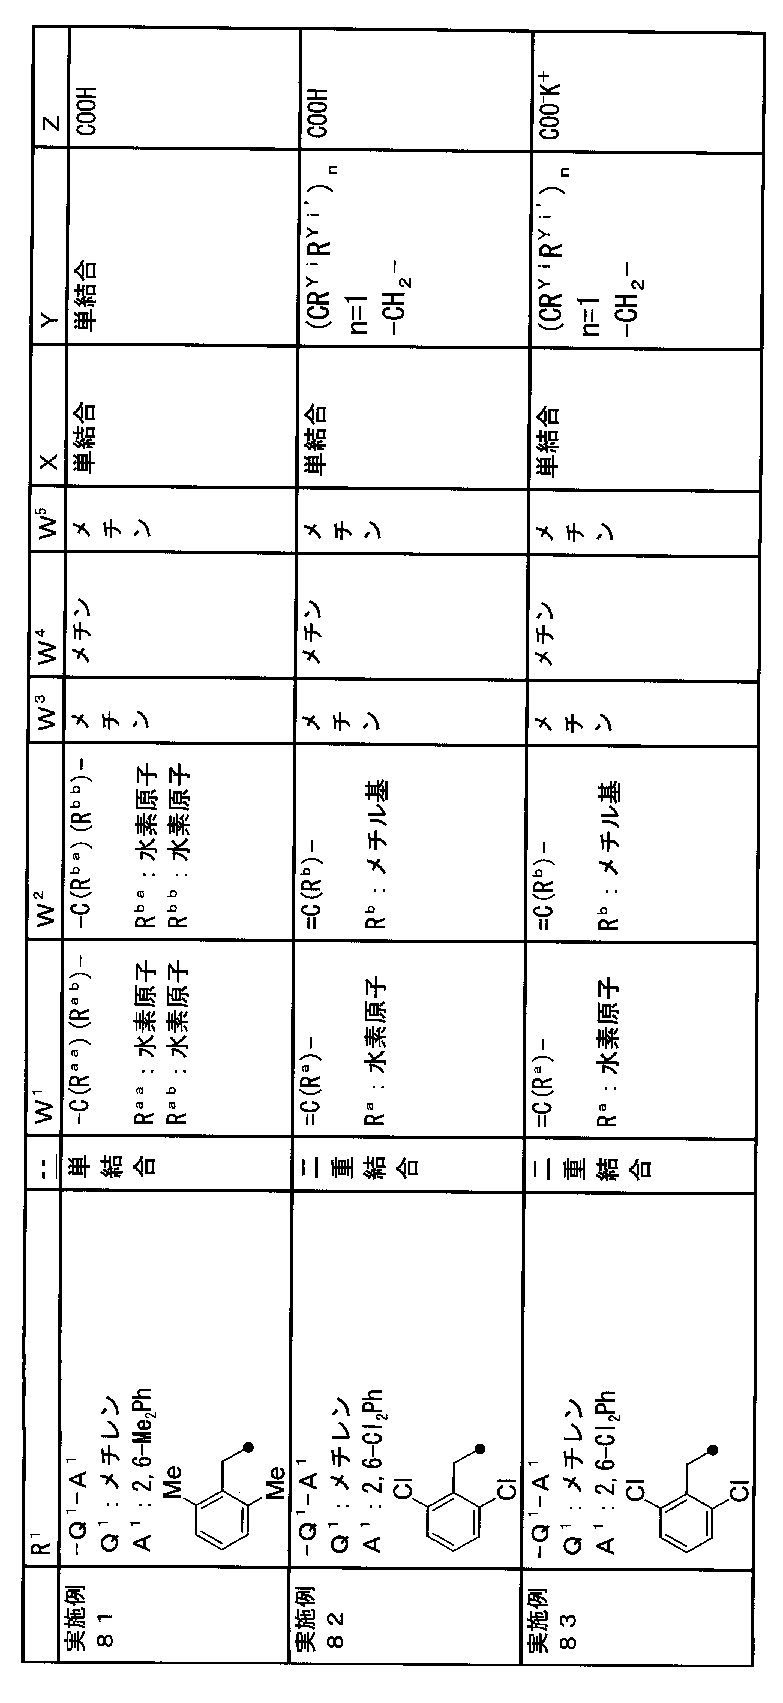 R¹
--
W¹
W²
W³
W⁴
W⁵
X
Y
Z
実施例
81
-Q¹-A¹
Q¹:メチレン
A¹:2,6-Me₂Ph
Me
Me
単
結
合
-C(Rᵃᵃ)(Rᵃᵇ)-
Rᵃᵃ:水素原子
Rᵃᵇ:水素原子
-C(Rᵇᵃ)(Rᵇᵇ)-
Rᵇᵃ:水素原子
Rᵇᵇ:水素原子
メ
チ
ン
メチン
メ
チ
ン
単結合
単結合
COOH
実施例
82
-Q¹-A¹
Q¹:メチレン
A¹:2,6-Cl₂Ph
Cl
Cl
二
重
結
合
=C(Rᵃ)-
Rᵃ:水素原子
=C(Rᵇ)-
Rᵇ:メチル基
メ
チ
ン
メチン
メ
チ
ン
単結合
(CRʸⁱRʸⁱ')ₙ
n=1
-CH₂-
COOH
実施例
83
-Q¹-A¹
Q¹:メチレン
A¹:2,6-Cl₂Ph
Cl
Cl
二
重
結
合
=C(Rᵃ)-
Rᵃ:水素原子
=C(Rᵇ)-
Rᵇ:メチル基
メ
チ
ン
メチン
メ
チ
ン
単結合
(CRʸⁱRʸⁱ')ₙ
n=1
-CH₂-
COO⁻K⁺